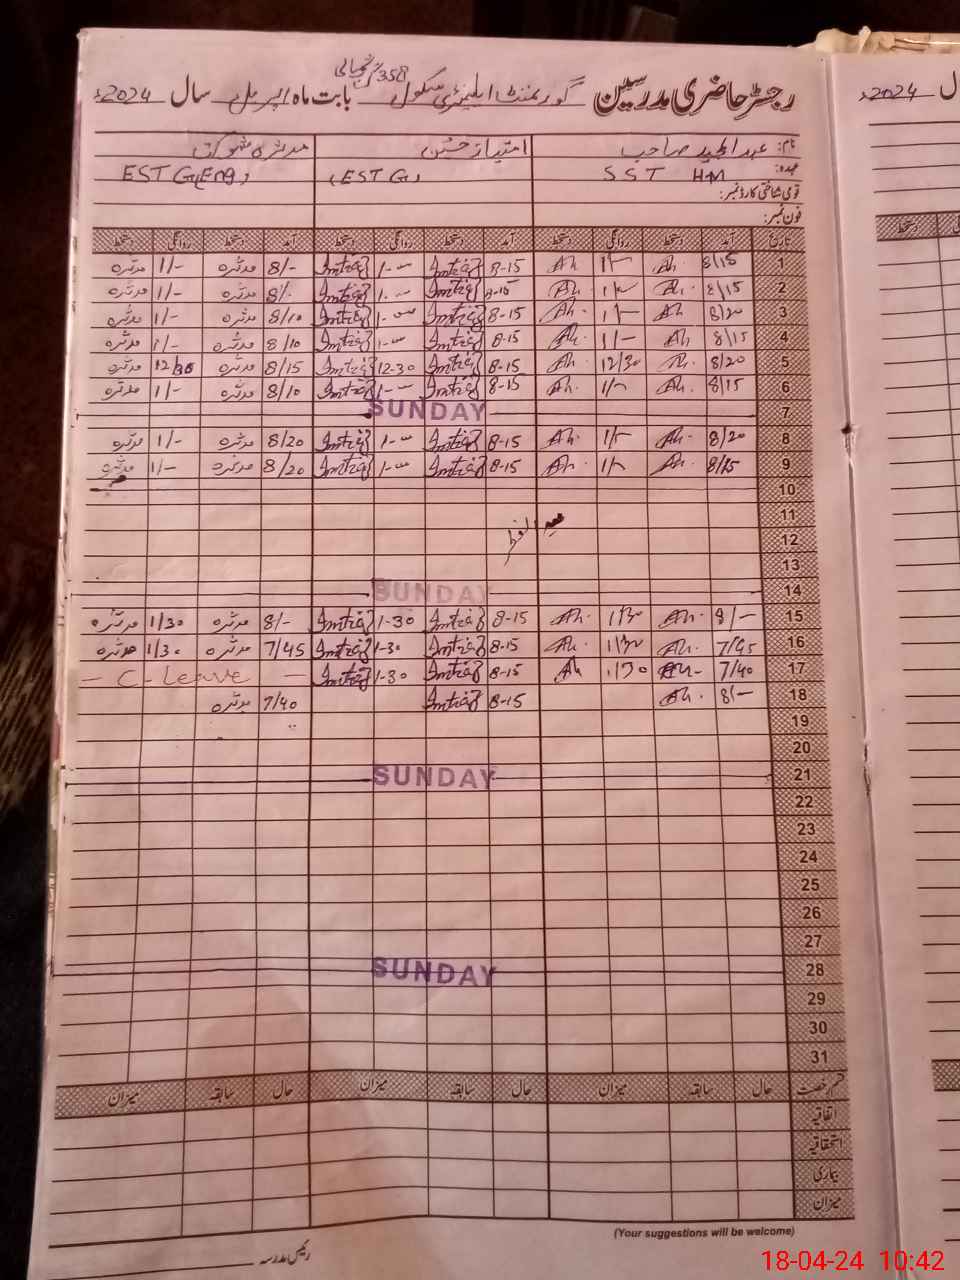 رجسٹر حاضری مدرسین گورنمنٹ ایلیمنٹری سکول 358 گ ب بابت ماہ اپریل سال 2024ء
2024ء
نام: عبدالمجید صاحب امتیاز حسین مدثرہ شوکت
عہدہ: SST HM (EST G) EST G(Eng)
قومی شناختی کارڈ نمبر:
فون نمبر:
تاریخ آمد دستخط روانگی دستخط آمد دستخط روانگی دستخط آمد دستخط روانگی دستخط
1 8/15 Ah. 1/- Ah. 8-15 Imtiaz 1-00 Imtiaz 8/- مدثرہ 1/- مدثرہ
2 8/15 Ah. Ah. 8-15 Imtiaz 1-00 Imtiaz 8/- مدثرہ 1/- مدثرہ
3 8/20 Ah. 1/- Ah. 8-15 Imtiaz 1-00 Imtiaz 8/10 مدثرہ 1/- مدثرہ
4 8/15 Ah. 1/- Ah. 8-15 Imtiaz 1-00 Imtiaz 8/10 مدثرہ 1/- مدثرہ
5 8/20 Ah. 12/30 Ah. 8-15 Imtiaz 12-30 Imtiaz 8/15 مدثرہ 12/30 مدثرہ
6 8/15 Ah. 1/- Ah. 8-15 Imtiaz 1-00 Imtiaz 8/10 مدثرہ 1/- مدثرہ
7 SUNDAY
8 8/20 Ah. 1/- Ah. 8-15 Imtiaz 1-00 Imtiaz 8/20 مدثرہ 1/- مدثرہ
9 8/15 Ah. 1/- Ah. 8-15 Imtiaz 1-00 Imtiaz 8/20 مدثرہ 1/- مدثرہ
10
11
عید الفطر
12
13
14 SUNDAY
15 8/- Ah. 1/30 Ah. 8-15 Imtiaz 1-30 Imtiaz 8/- مدثرہ 1/30 مدثرہ
16 7/45 Ah. 1/30 Ah. 8-15 Imtiaz 1-30 Imtiaz 7/45 مدثرہ 1/30 مدثرہ
17 7/40 Ah. 1/30 Ah 8-15 Imtiaz 1-30 Imtiaz — C-Leave —
18 8/- Ah. 8-15 Imtiaz 7/40 مدثرہ
19
20
21 SUNDAY
22
23
24
25
26
27
28 SUNDAY
29
30
31
قسم رخصت حال سابقہ میزان حال سابقہ میزان حال سابقہ میزان
اتفاقیہ
استحقاقیہ
بیماری
میزان
(Your suggestions will be welcome)
رئیس مدرسہ
18-04-24 10:42